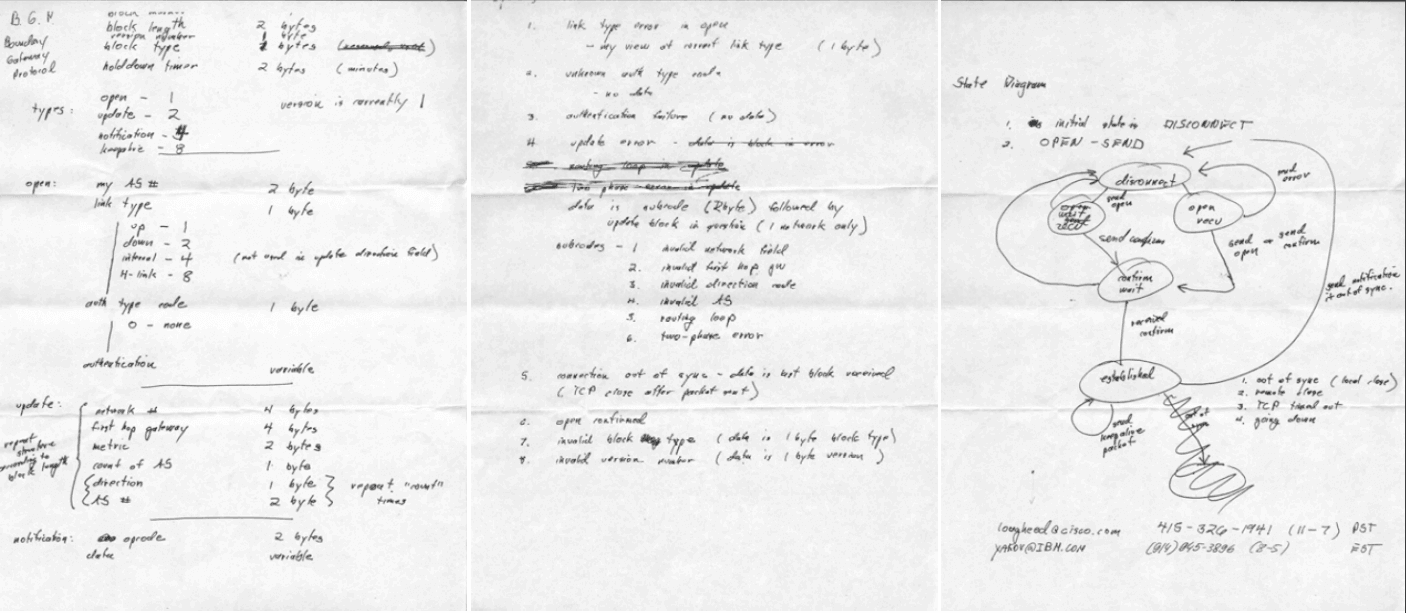 B. G. P.
Boundary
Gateway
Protocol
block marker
block length 2 bytes
version number 1 byte
block type bytes
holddown timer 2 bytes (minutes)
types: open - 1 version is currently 1
update - 2
notification - 4
keepalive - 8
open: my AS # 2 byte
link type 1 byte
up - 1
down - 2
internal - 4 (not used in update direction field)
H-link - 8
auth type code 1 byte
0 - none
authentication variable
update: network # 4 bytes
first hop gateway 4 bytes
metric 2 bytes
count of AS 1 byte
direction 1 byte } repeat "count"
AS # 2 byte } times
repeat
structure
according to
block length
notification: opcode 2 bytes
data variable
1. link type error in open
- my view of correct link type (1 byte)
2. unknown auth type code
- no data
3. authentication failure (no data)
4. update error - data is block in error
routing loop in update
two phase error in update
data is subcode (2 byte) followed by
update block in question (1 network only)
subcodes - 1 invalid network field
2. invalid first hop gw
3. invalid direction code
4. invalid AS
5. routing loop
6. two-phase error
5. connection out of sync - data is last block received
(TCP close after packet sent)
6. open confirmed
7. invalid block type (data is 1 byte block type)
8. invalid version number (data is 1 byte version)
State Diagram
1. initial state is DISCONNECT
2. OPEN - SEND
disconnect
send
error
send
open
open
recv
send confirm
send or send
open confirm
confirm
wait
send notification
if out of sync.
received
confirm
established
1. out of sync (local close)
2. remote close
3. TCP timed out
4. going down
send
keepalive
packet
lougheed@cisco.com 415-326-1941 (11-7) PST
YAKOV@IBM.COM (914)945-3896 (8-5) EST